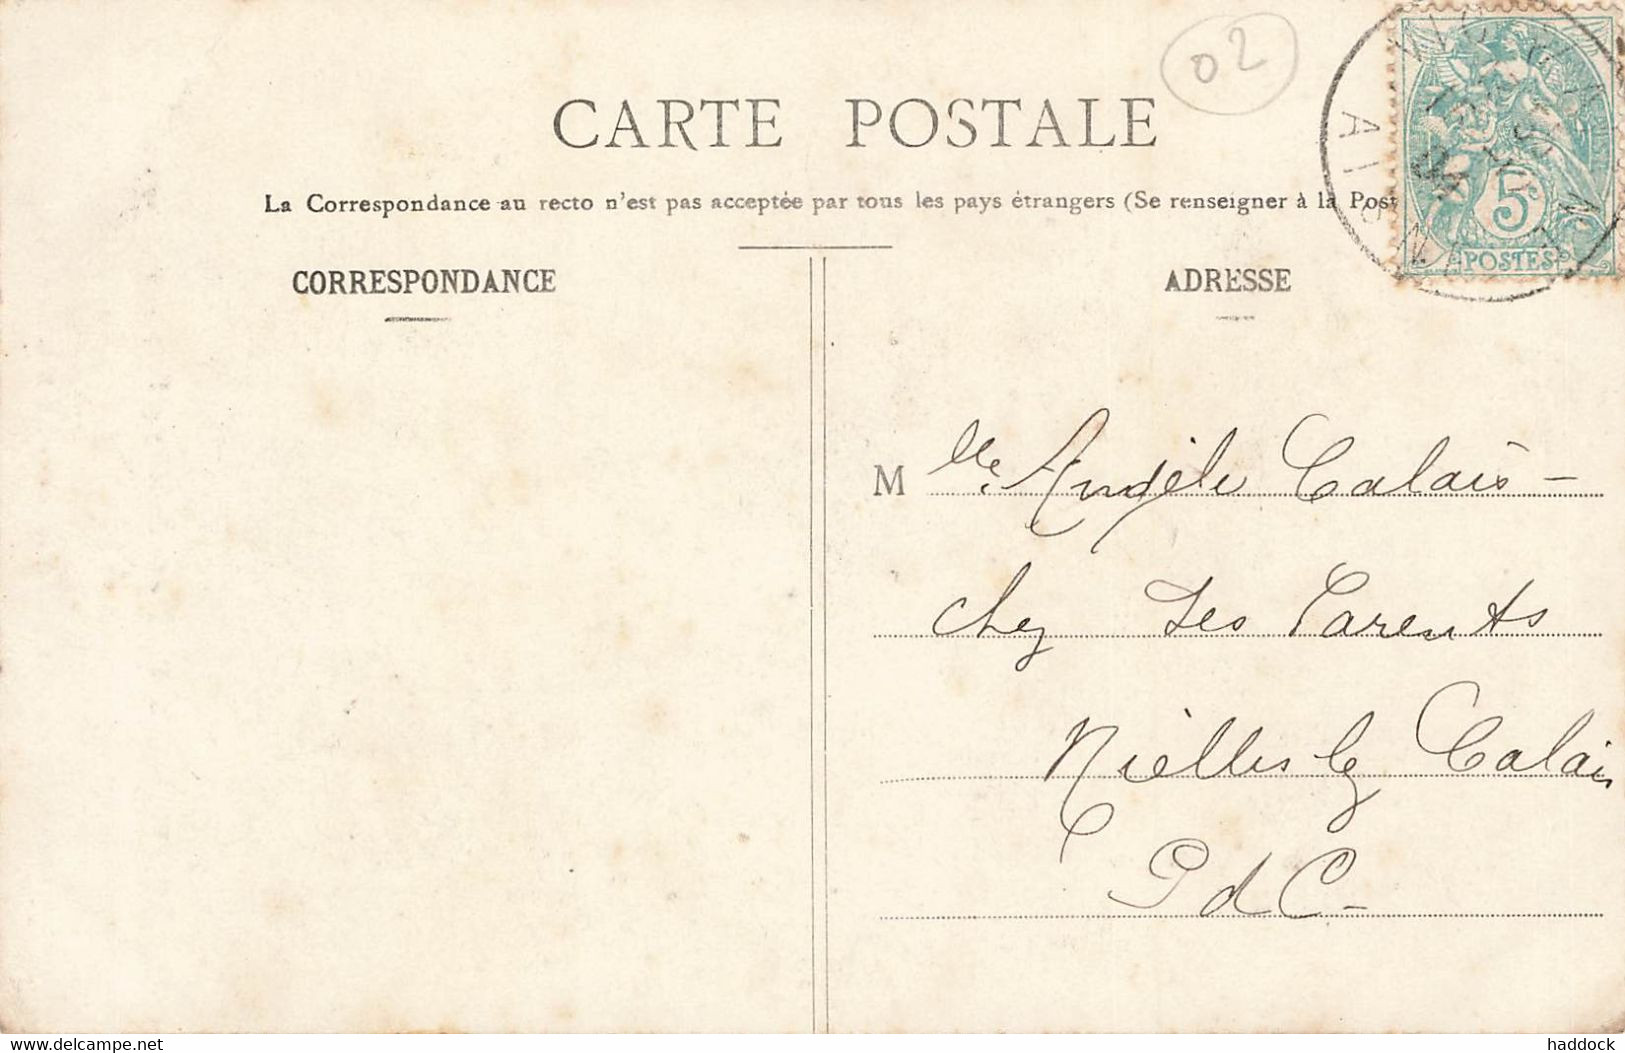 02
CARTE POSTALE
La Correspondance au recto n'est pas acceptée par tous les pays étrangers (Se renseigner à la Post
CORRESPONDANCE
ADRESSE
5c
POSTES
AISNE
M lle. Angèle Calais -
chez Ses Parents
Nièlles lez Calais
P d C -
www.delcampe.net
haddock